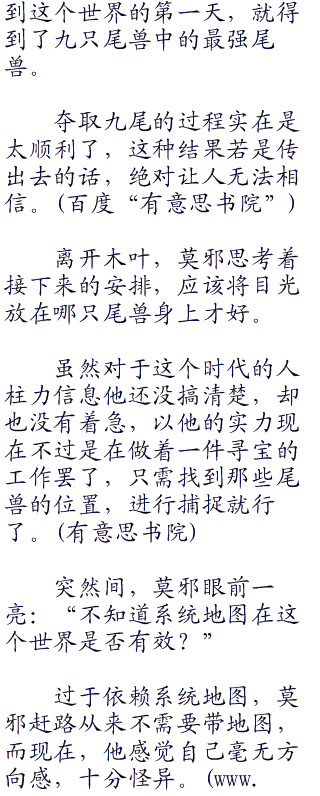 到这个世界的第一天，就得
到了九只尾兽中的最强尾
兽。
夺取九尾的过程实在是
太顺利了，这种结果若是传
出去的话，绝对让人无法相
信。(百度“有意思书院”)
离开木叶，莫邪思考着
接下来的安排，应该将目光
放在哪只尾兽身上才好。
虽然对于这个时代的人
柱力信息他还没搞清楚，却
也没有着急，以他的实力现
在不过是在做着一件寻宝的
工作罢了，只需找到那些尾
兽的位置，进行捕捉就行
了。(有意思书院)
突然间，莫邪眼前一
亮：“不知道系统地图在这
个世界是否有效？”
过于依赖系统地图，莫
邪赶路从来不需要带地图，
而现在，他感觉自己毫无方
向感，十分怪异。(www.